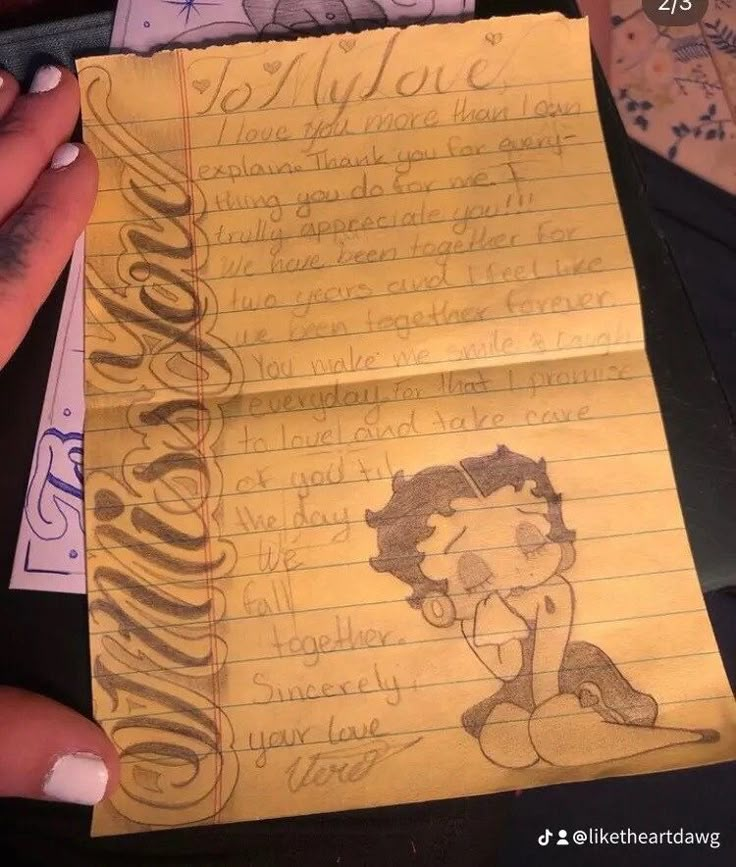 2/3
To My Love
I love you more than I can
explain. Thank you for every-
thing you do for me. I
trully appreciate you!!!
We have been together for
two years and I feel like
we been together forever.
You make me smile & laugh
everyday, for that I promise
to love and take care
of you til
the day
We
fall
together.
Sincerely,
your love
I Miss You
@liketheartdawg